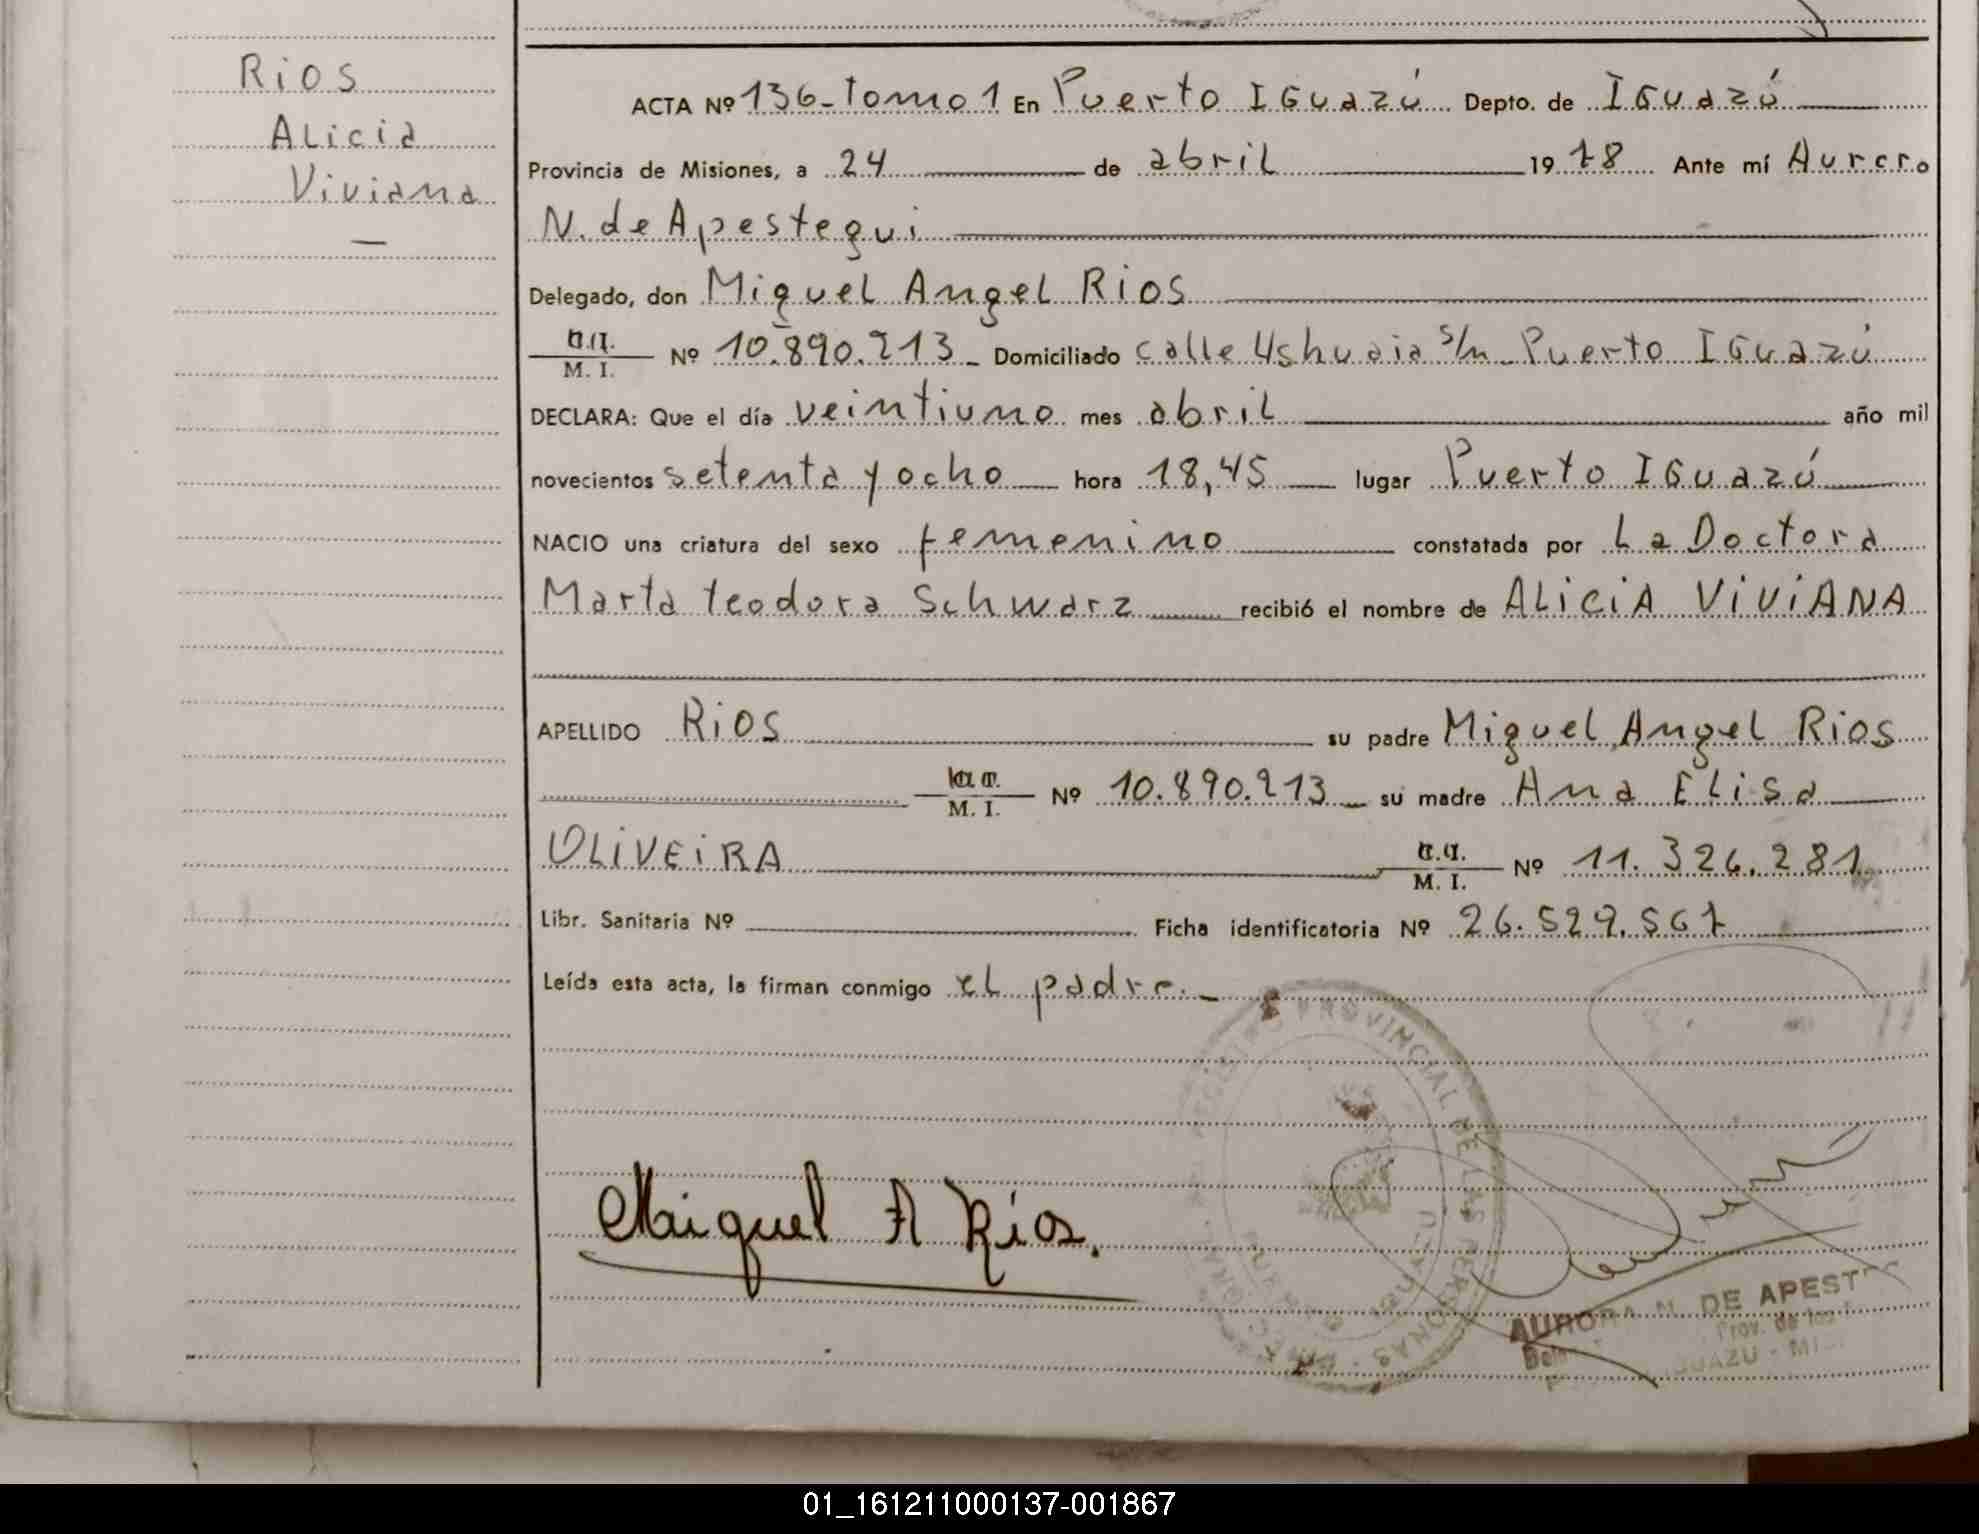 Rios
Alicia
Viviana
ACTA Nº 136-Tomo 1 En Puerto Iguazú Depto. de Iguazú
Provincia de Misiones, a 24 de abril 1978 Ante mí Aurora
N. de Apestegui
Delegado, don Miguel Angel Rios
M. I. Nº 10.890.213 Domiciliado calle Ushuaia s/n Puerto Iguazú
DECLARA: Que el día veintiuno mes abril año mil
novecientos setenta y ocho hora 18,45 lugar Puerto Iguazú
NACIO una criatura del sexo femenino constatada por La Doctora
Marta Teodora Schwarz recibió el nombre de ALICIA VIVIANA
APELLIDO Rios su padre Miguel Angel Rios
M. I. Nº 10.890.213 su madre Ana Elisa
OLIVEIRA M. I. Nº 11.326.281
Libr. Sanitaria Nº Ficha identificatoria Nº 26.529.567
Leída esta acta, la firman conmigo el padre.
PROVINCIAL DE LAS PERSONAS
Miguel A Ríos.
AURORA DE
01_161211000137-001867